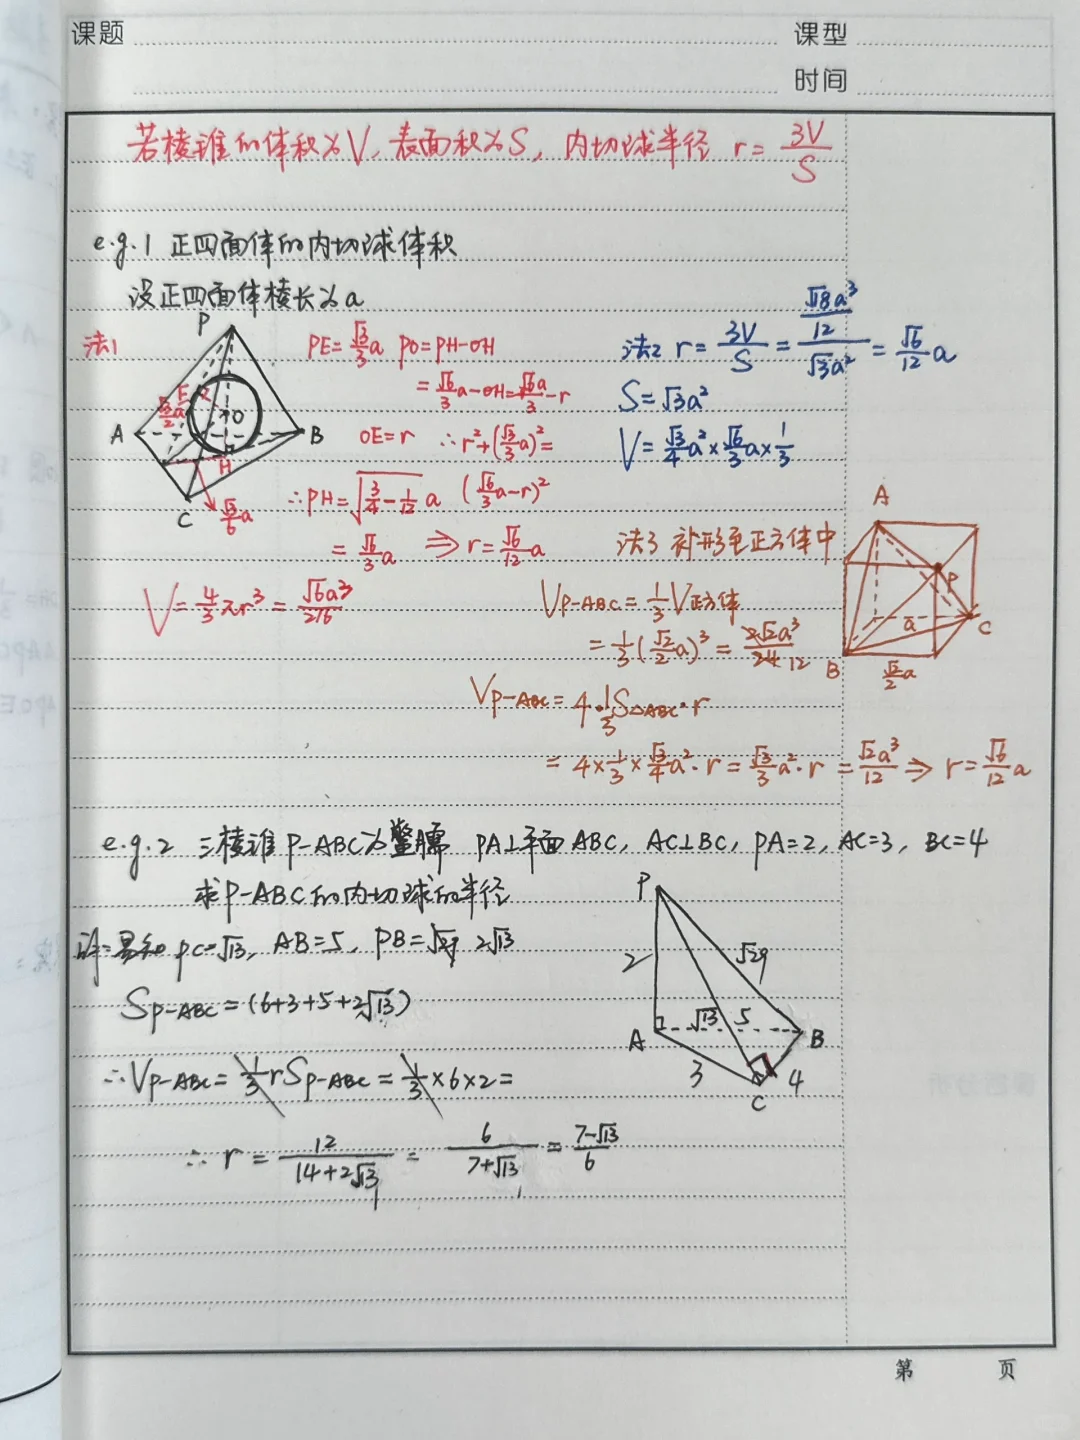 课题
课型
时间
若棱锥的体积为V,表面积为S,内切球半径 r=3V/S
e.g.1 正四面体的内切球体积
设正四面体棱长为a
法1
P
E
R
O
A
B
H
C
√3/2 a
√3/6 a
PE=√3/3 a PO=PH-OH
=√6/3 a-OH=√6a/3-r
OE=r ∴r²+(√3/3 a)²=
(√6/3 a-r)²
∴PH=√(3/4-1/12) a
=√6/3 a ⇒ r=√6/12 a
V=4/3 πr³=√6a³/216
法2 r=3V/S=(√18a³/12)/(√3a²)=√6/12 a
S=√3a²
V=√3/4 a²×√6/3 a×1/3
法3 补形至正方体中
V P-ABC=1/3 V正方体
=1/3(√2/2 a)³=2√2a³/24 12
V P-ABC=4·1/3 S△ABC·r
=4×1/3×√3/4 a²·r=√3/3 a²·r=√2a³/12⇒r=√6/12 a
A
P
a
C
B
√2/2 a
e.g.2 三棱锥P-ABC为鳖臑 PA⊥平面ABC, AC⊥BC, PA=2, AC=3, BC=4
求P-ABC的内切球的半径
解:易知PC=√13, AB=5, PB=√29 2√13
S P-ABC=(6+3+5+2√13)
∴V P-ABC=1/3 r S P-ABC=1/3×6×2=
∴ r=12/(14+2√13)=6/(7+√13)=(7-√13)/6
P
2
√29
A
√13
5
B
3
4
C
第 页